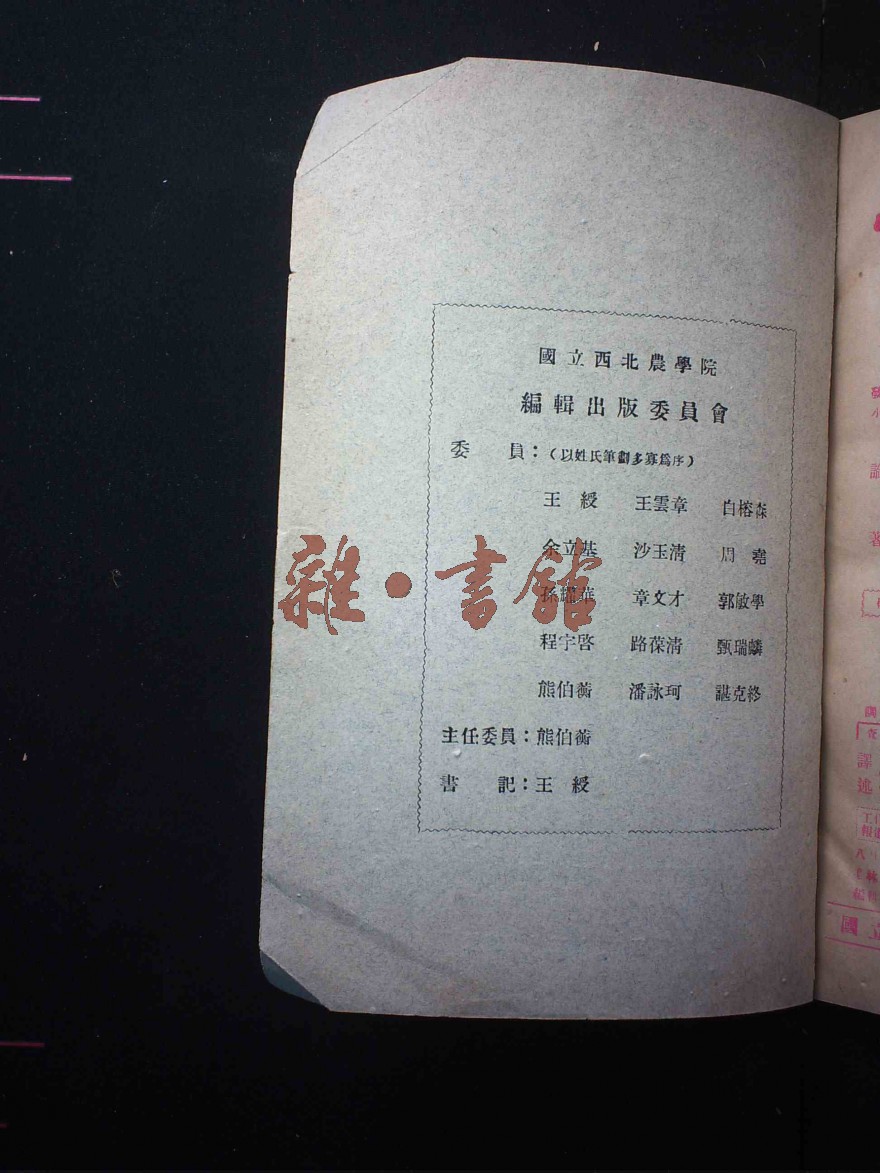 國立西北農學院
編輯出版委員會
委員：（以姓氏筆劃多寡爲序）
王綬 王雲章 白榕森
余立基 沙玉清 周堯
孫耀華 章文才 郭敏學
程宇啓 路葆清 甄瑞麟
熊伯蘅 潘詠珂 諶克終
主任委員：熊伯蘅
書記：王綬
雜·書館
國立